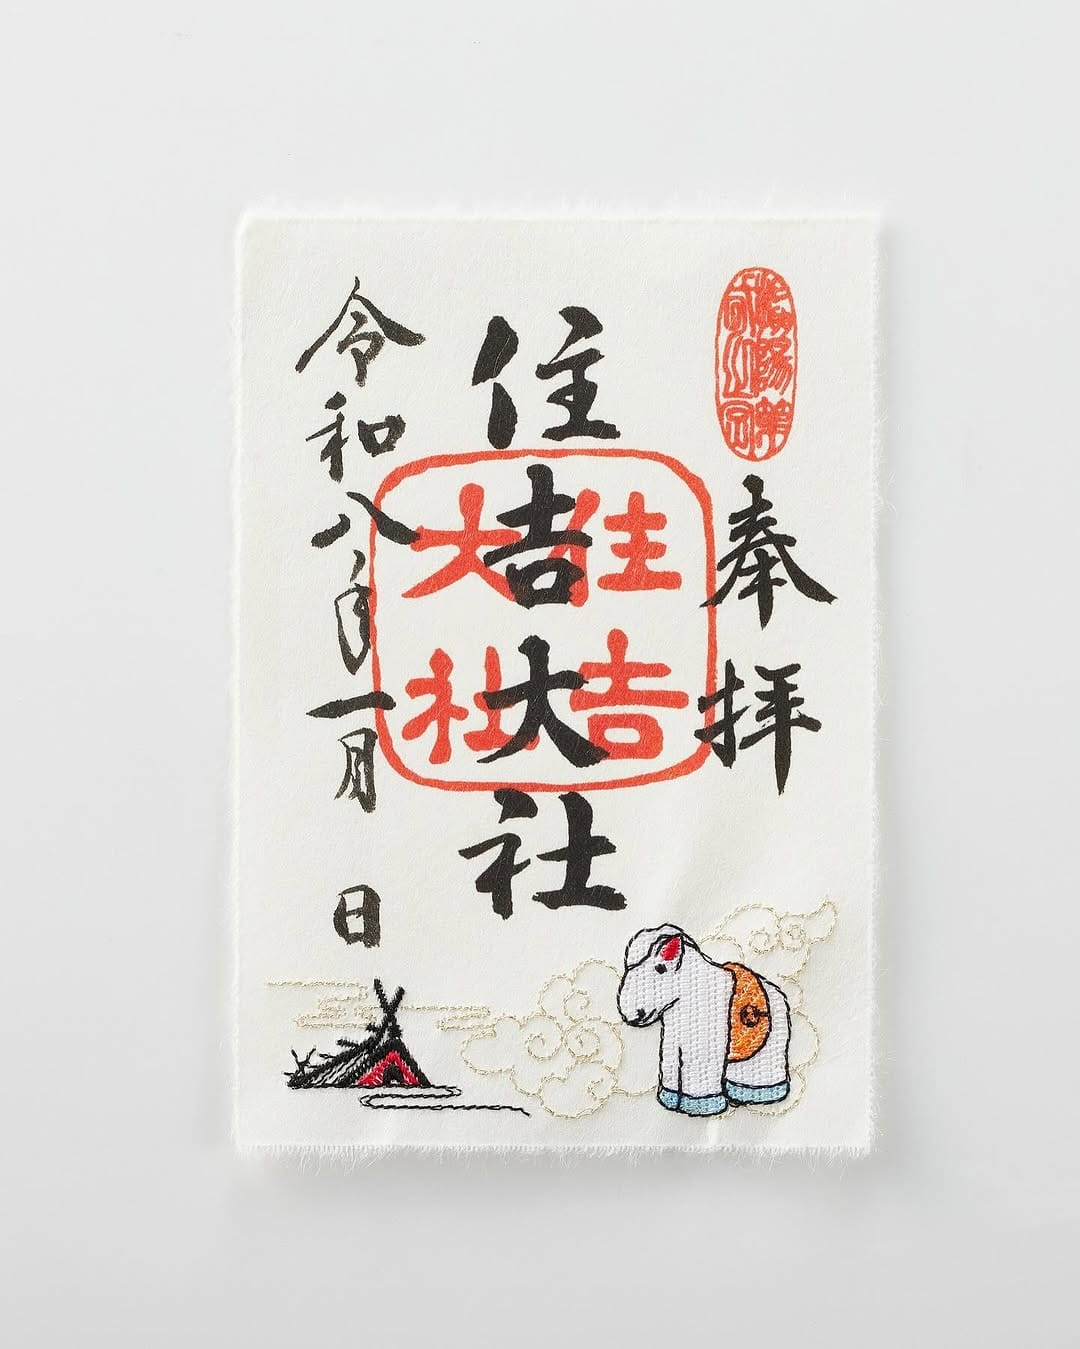 奉拝
住吉大社
住吉
大社
令和八年一月 日